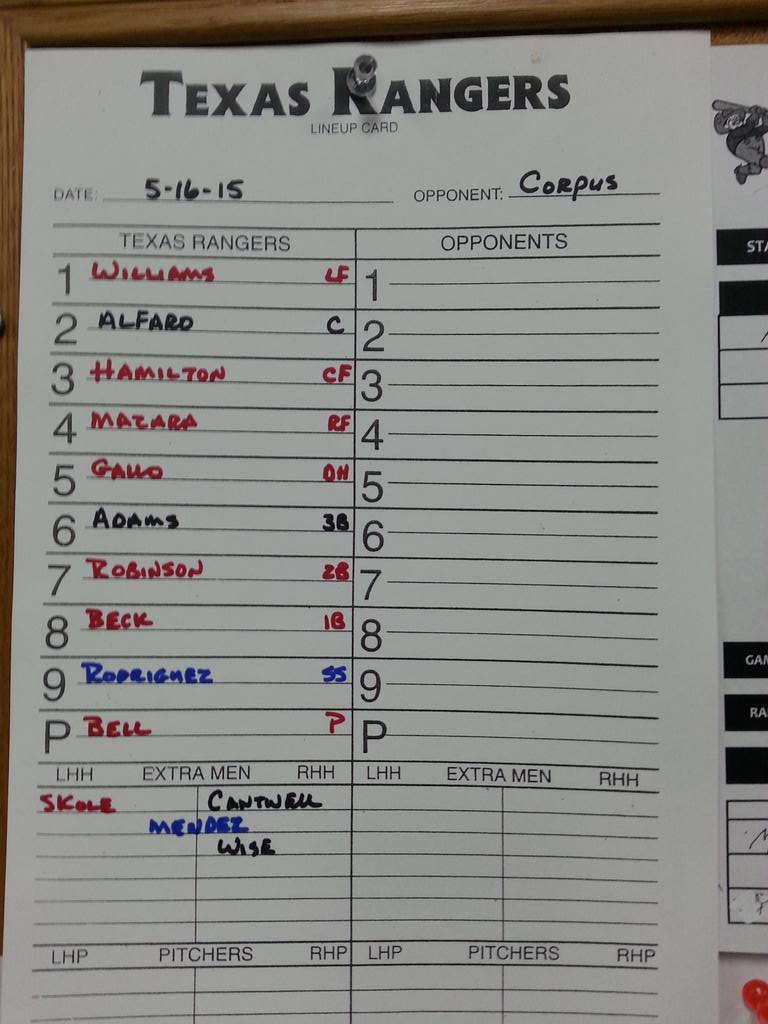 TEXAS RANGERS
LINEUP CARD
DATE: 5-16-15 OPPONENT: CORPUS
TEXAS RANGERS OPPONENTS
1 WILLIAMS LF 1
2 ALFARO C 2
3 HAMILTON CF 3
4 MAZARA RF 4
5 GALLO DH 5
6 ADAMS 3B 6
7 ROBINSON 2B 7
8 BECK 1B 8
9 RODRIGUEZ SS 9
P BELL P P
LHH EXTRA MEN RHH LHH EXTRA MEN RHH
SKOLE CANTWELL
MENDEZ
WISE
LHP PITCHERS RHP LHP PITCHERS RHP